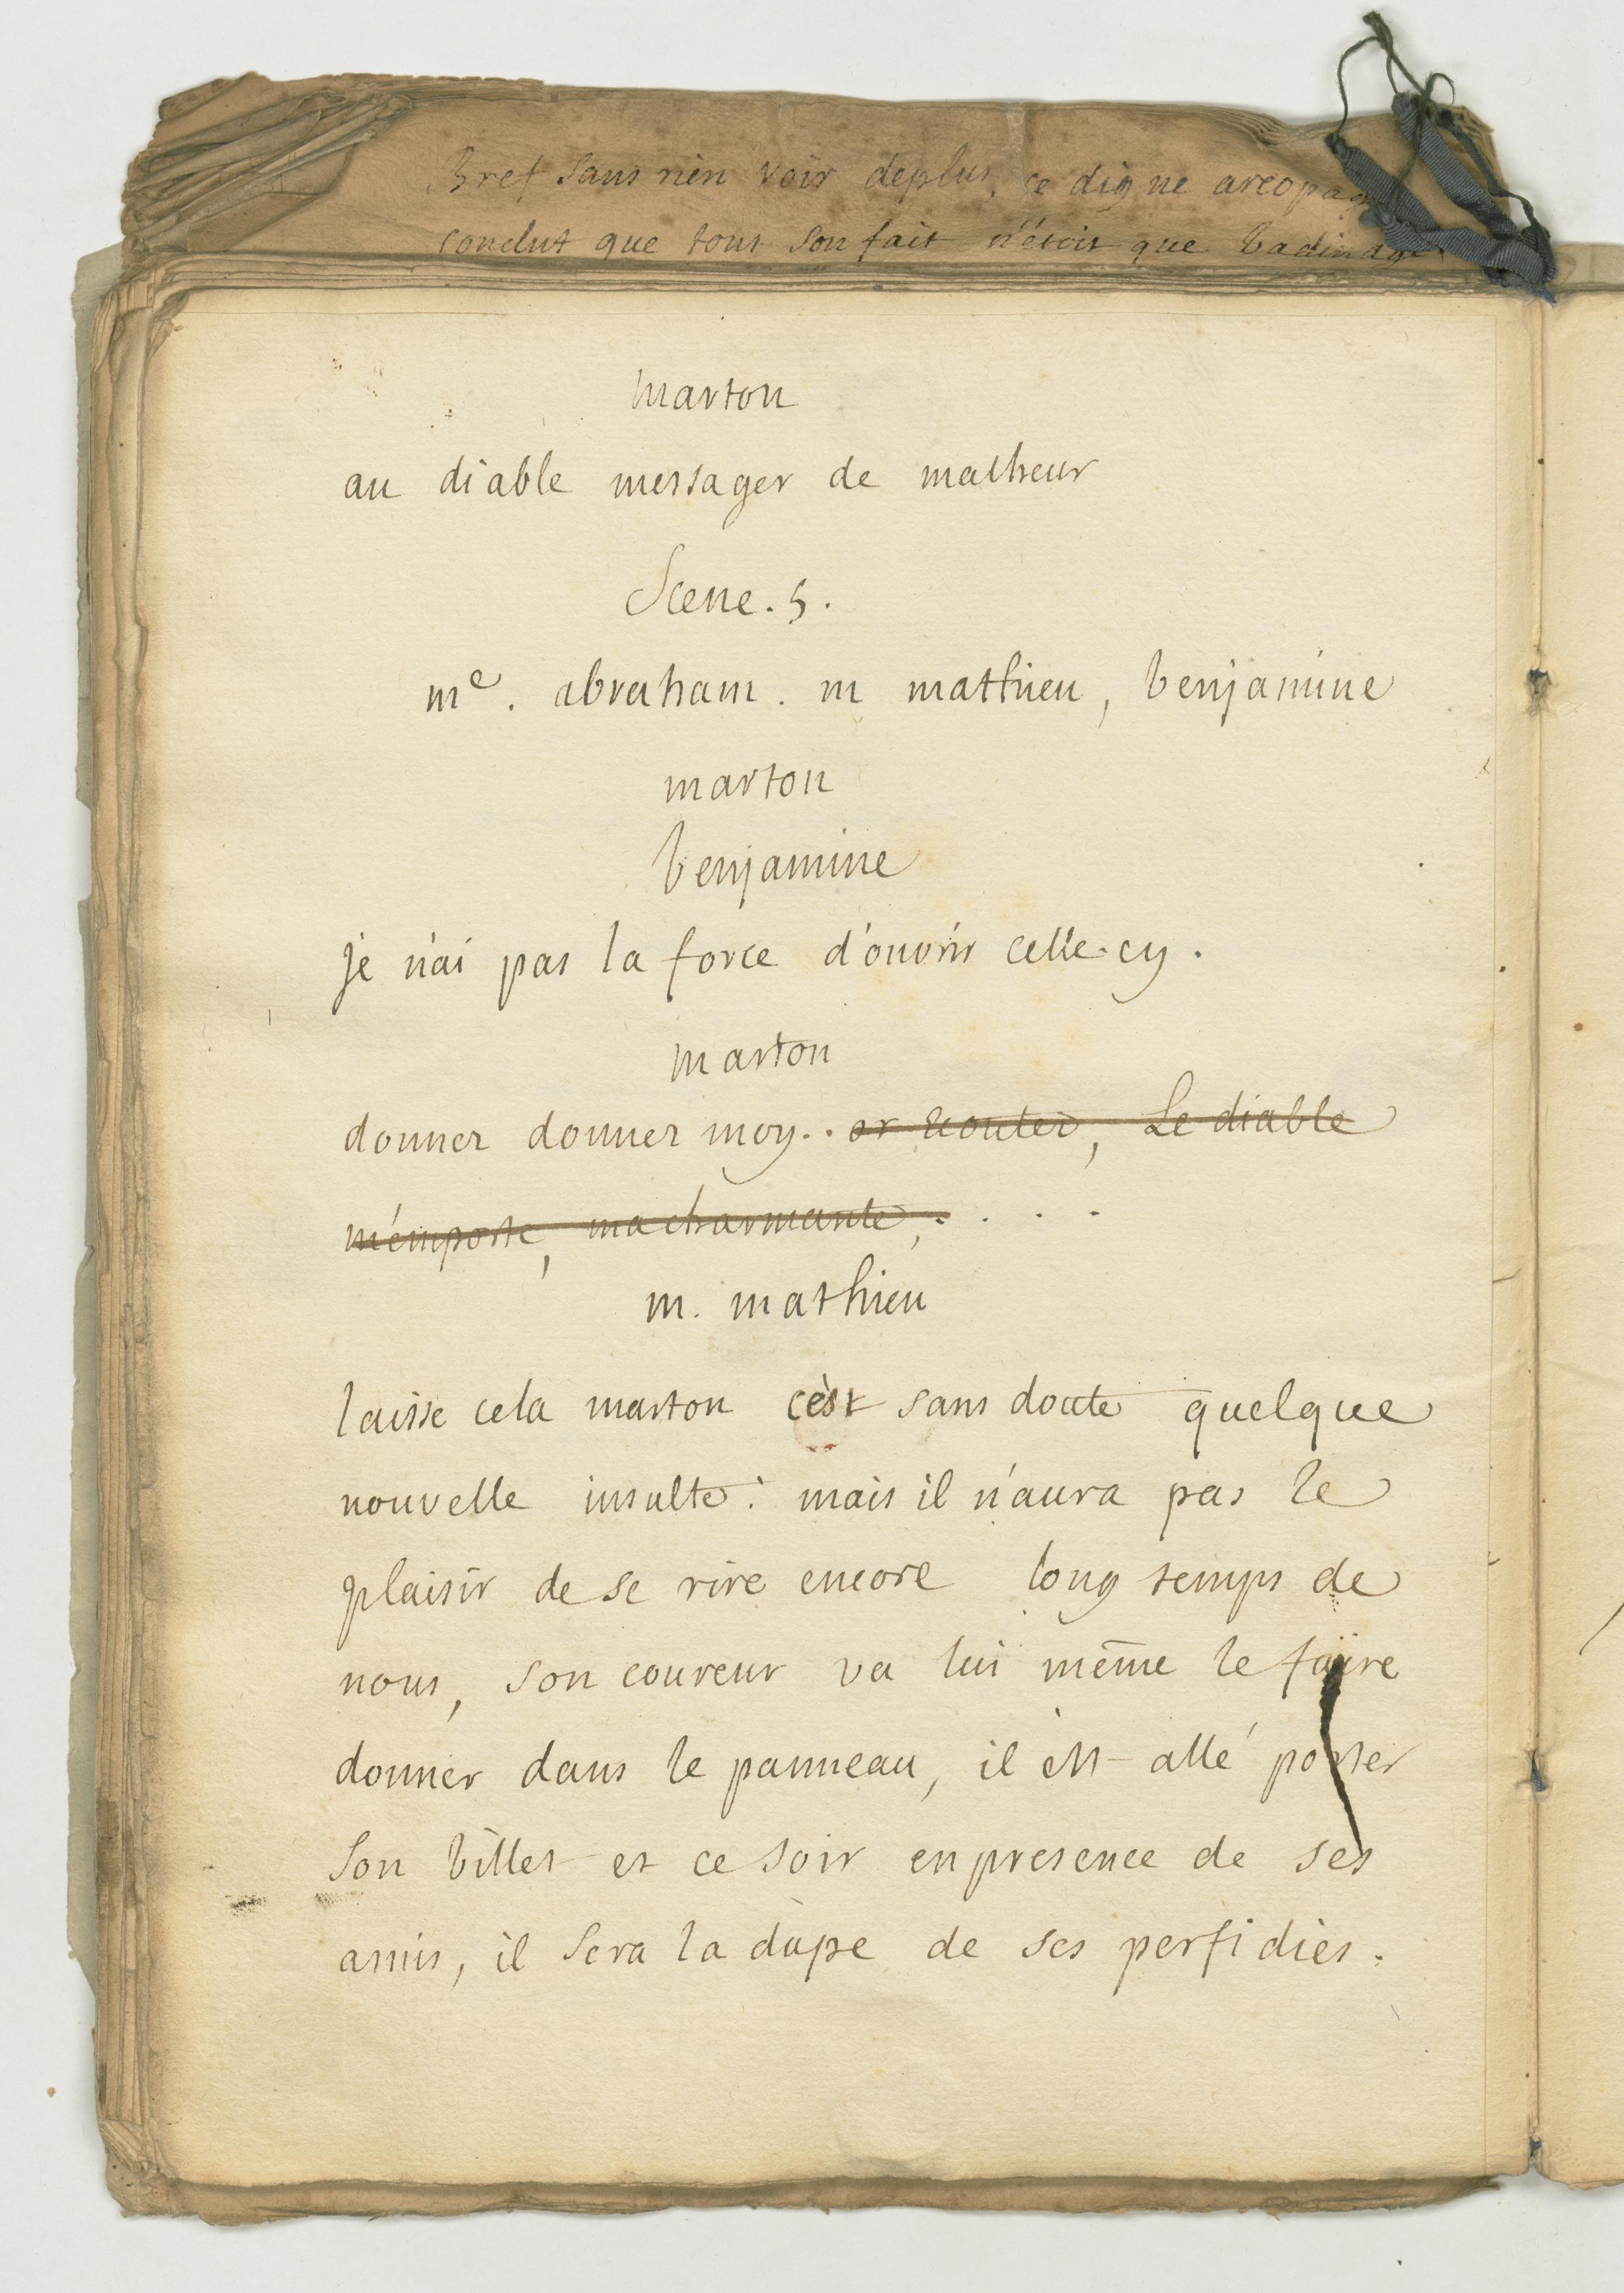 Bref sans rien voir deplus, ce digne areopage
conclut que tout son fait n'étoit que badinage
marton
au diable messager de malheur
Scene. 5.
me. abraham. m mathieu, benjamine
marton
benjamine
je n'ai pas la force d'ouvrir celle-cy.
marton
donner donner moy.. or ecouter, Le diable
m'emporte, ma charmante, . . . .
m. mathieu
laisse cela marton c'est sans doute quelque
nouvelle insulte: mais il n'aura pas le
plaisir de se rire encore long temps de
nous, son coureur va lui même le faire
donner dans le panneau, il est allé porter
son billet et ce soir en presence de ses
amis, il sera la dupe de ses perfidies.